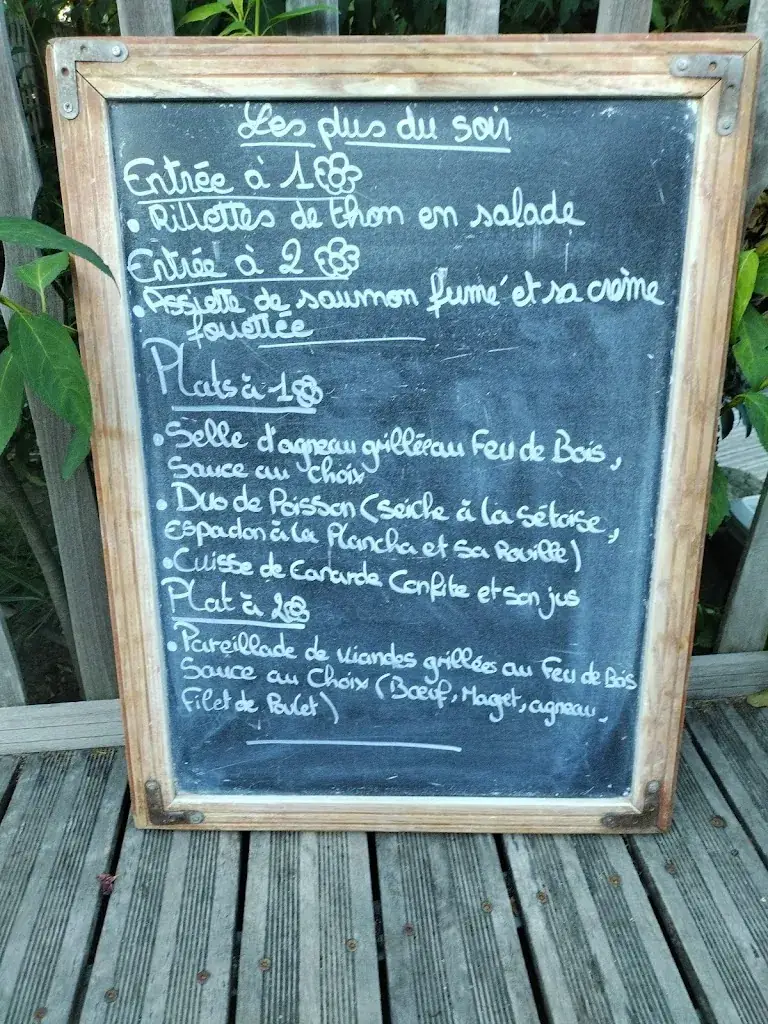 Les plus du soir
Entrée à 1
• Rillettes de thon en salade
Entrée à 2
• Assiette de saumon fumé et sa crème
fouettée
Plats à 1
• Selle d'agneau grillée au Feu de Bois,
Sauce au choix
• Duo de Poisson (seiche à la sétoise,
Espadon à la Plancha et sa Rouille)
• Cuisse de Canarde Confite et son jus
Plat à 2
• Pareillade de viandes grillées au Feu de Bois
Sauce au Choix (Bœuf, Magret, agneau,
Filet de Poulet)